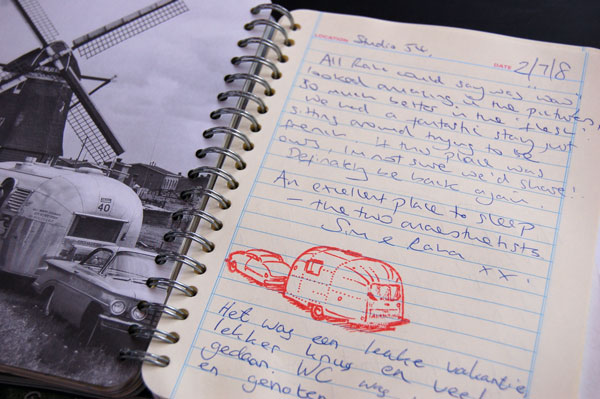 40
LOCATION Studio 54. DATE 2/7/8
All Rara could say was "wow",
looked amazing in the pictures,
so much better in the "flesh".
We had a fantastic stay just
sitting around trying to be
French. If this place was
ours, I'm not sure we'd share!
Definately be back again
An excellent place to sleep
- the two anaesthetists
Sim & Rara xx.
Het was een leuke vakantie
lekker knus en veel
gedaan. WC was
en genoten